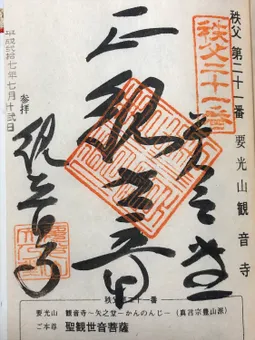 秩父 第二十一番 要光山観音寺
秩父二十一番
正観世音
参拝
観音寺
平成弐拾七年七月十弐日
秩父第二十一番
要光山 観音寺〜矢之堂〜かんのんじ〜(真言宗豊山派)
ご本尊 聖観世音菩薩